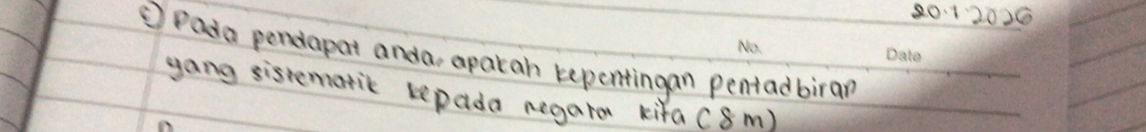 20.1.2026
No. Date
① Pada pendapat anda, apakah kepentingan pentadbiran
yang sistematik kepada negara kita (8m)